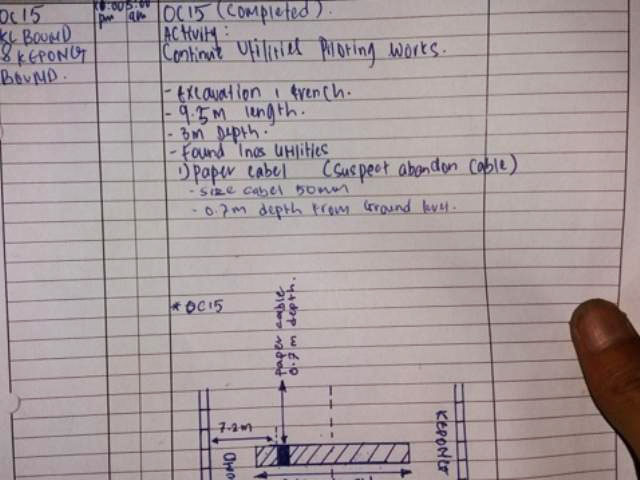 OC15
KL BOUND
& KEPONG
BOUND.
10:00 5:00
pm am
OC15 (Completed).
Activity:
Continue Utilities Piloting Works.
- Excavation 1 trench.
- 9.5m length.
- 3m Depth.
- Found 1nos Utilities
1) Paper cabel (suspect abandon cable)
- size cabel 50mm
- 0.7m depth from Ground level.
* OC15
Paper cable
0.7m depth.
7.2m
KEPONG